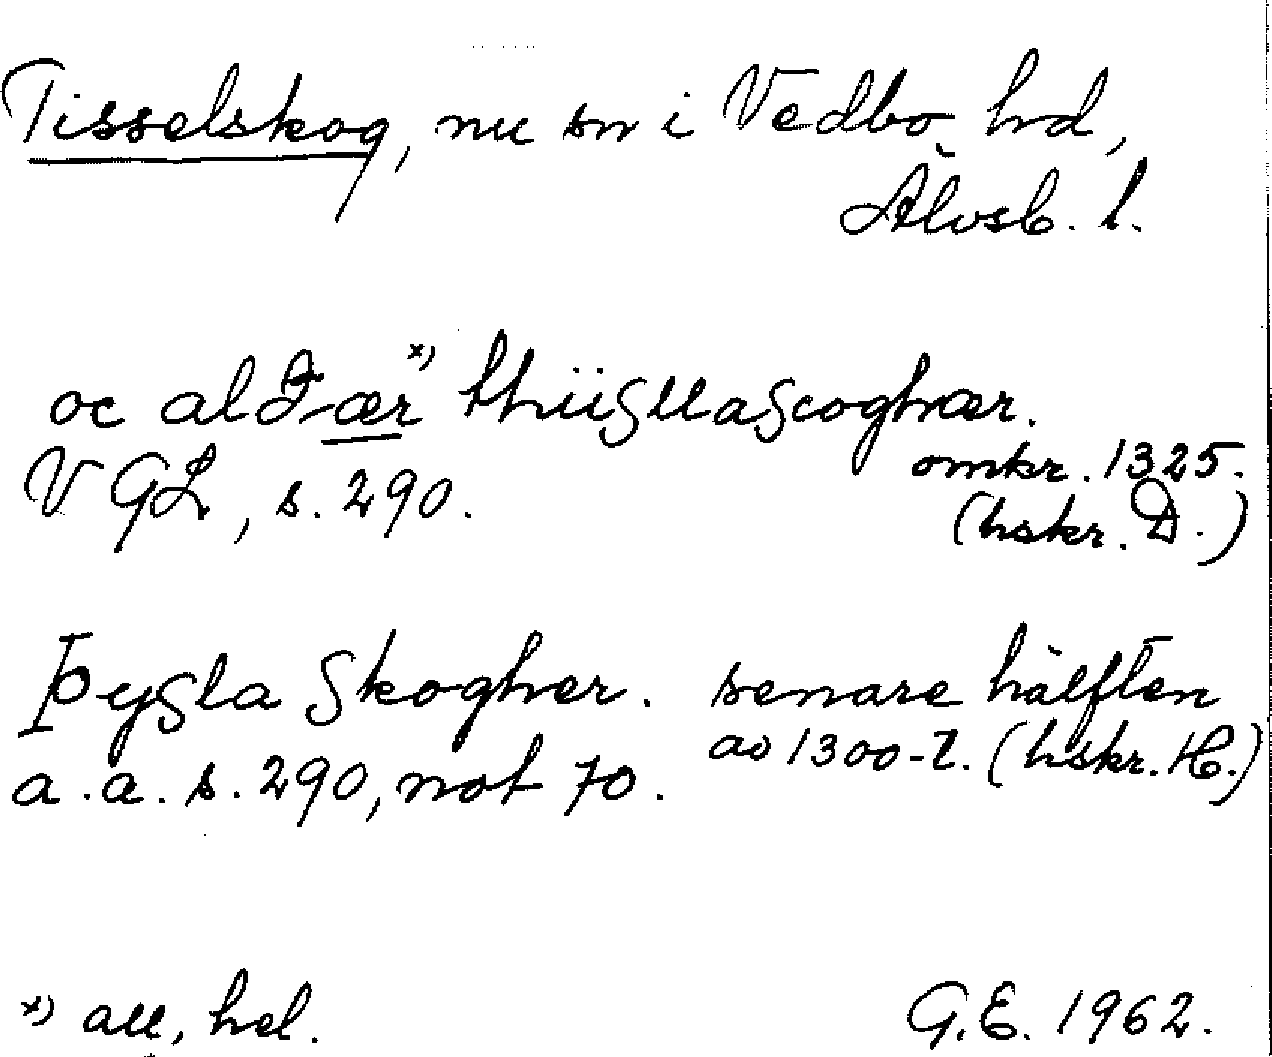 Tisselskog, nu sn i Vedbo hd,
Älvsb. l.
oc alđær x) thiisllascoghær.
VGL, s. 290.
omkr. 1325.
(hskr. D.)
Þysla skogher.
senare hälften
a.a. s. 290, not 70.
av 1300-t. (hskr. H.)
x) all, hel.
G.E. 1962.